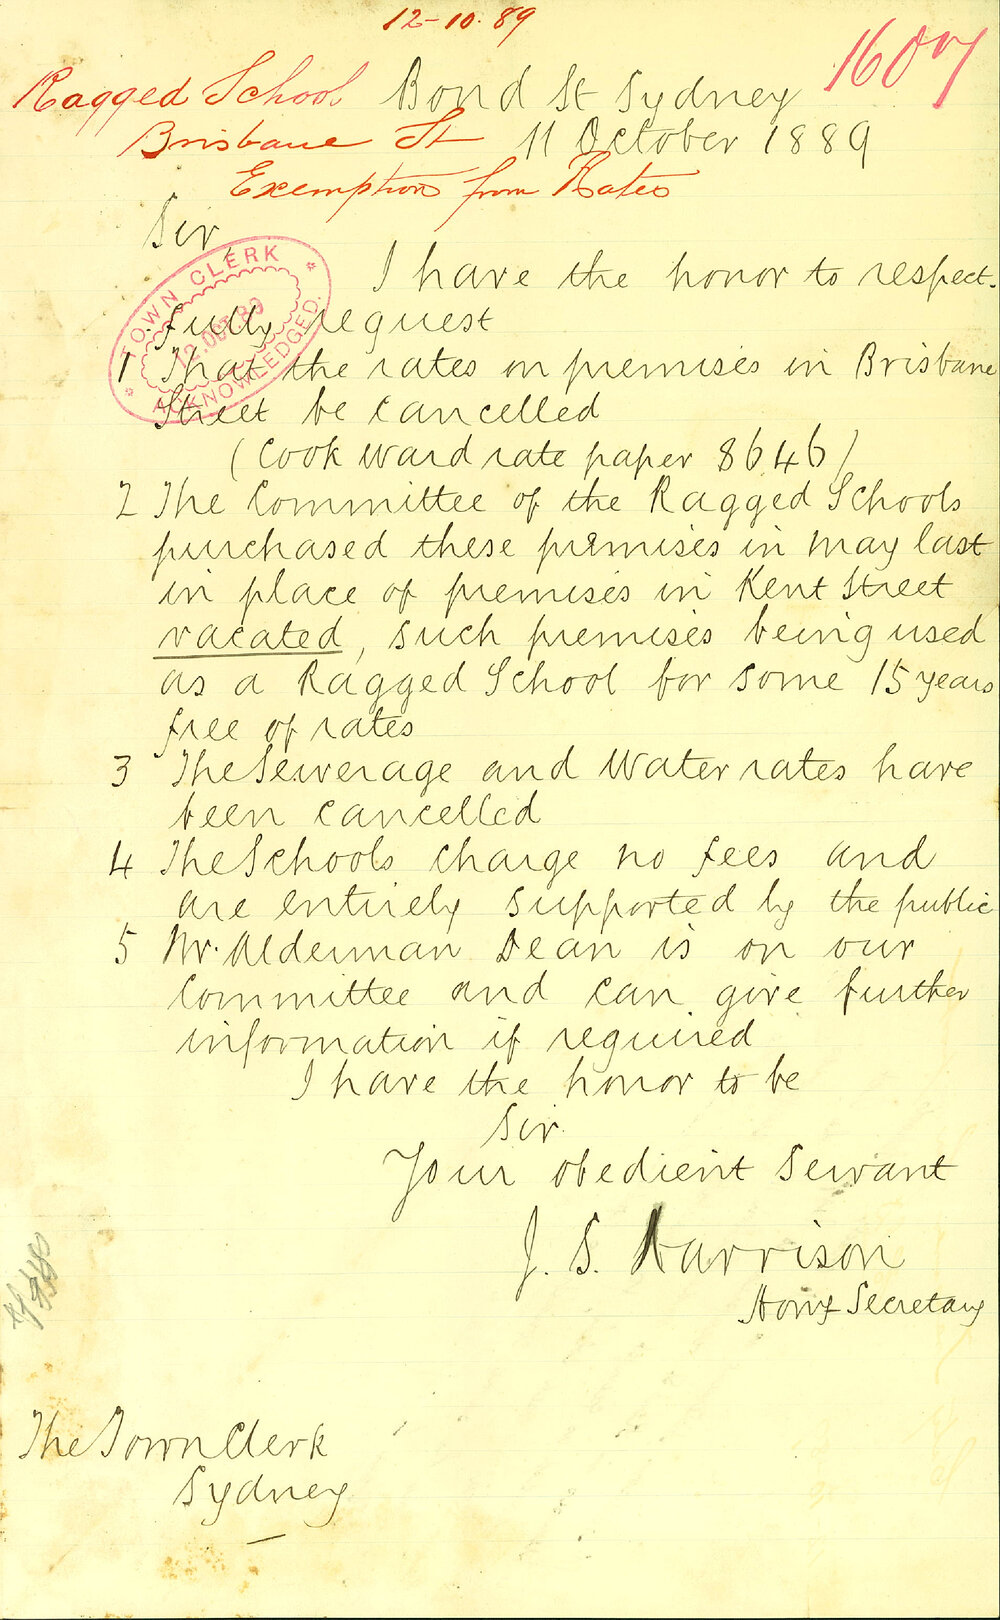 12-10-89
1607
Ragged School
Brisbane St
Exemption from Rates
Bond St Sydney
11 October 1889
Sir,
TOWN CLERK
12.OCT.89
ACKNOWLEDGED.
I have the honor to respect-
fully request
1 That the rates on premises in Brisbane
Street be cancelled
(Cook Ward rate paper 8646)
2 The Committee of the Ragged Schools
purchased these premises in May last
in place of premises in Kent Street
vacated, such premises being used
as a Ragged School for some 15 years
free of rates
3 The Sewerage and Water rates have
been cancelled
4 The Schools charge no fees and
are entirely supported by the public
5 Mr. Alderman Dean is on our
Committee and can give further
information if required
I have the honor to be
Sir
Your obedient Servant
J. S. Harrison
Hony Secretary
The Town Clerk
Sydney